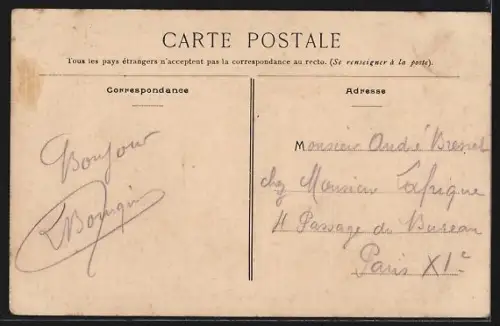 CARTE POSTALE
Tous les pays étrangers n'acceptent pas la correspondance au recto. (Se renseigner à la poste).
Correspondance
Adresse
Bonjour
Monsieur André
chez Monsieur Lafrique
4 Passage du Bureau
Paris XIe